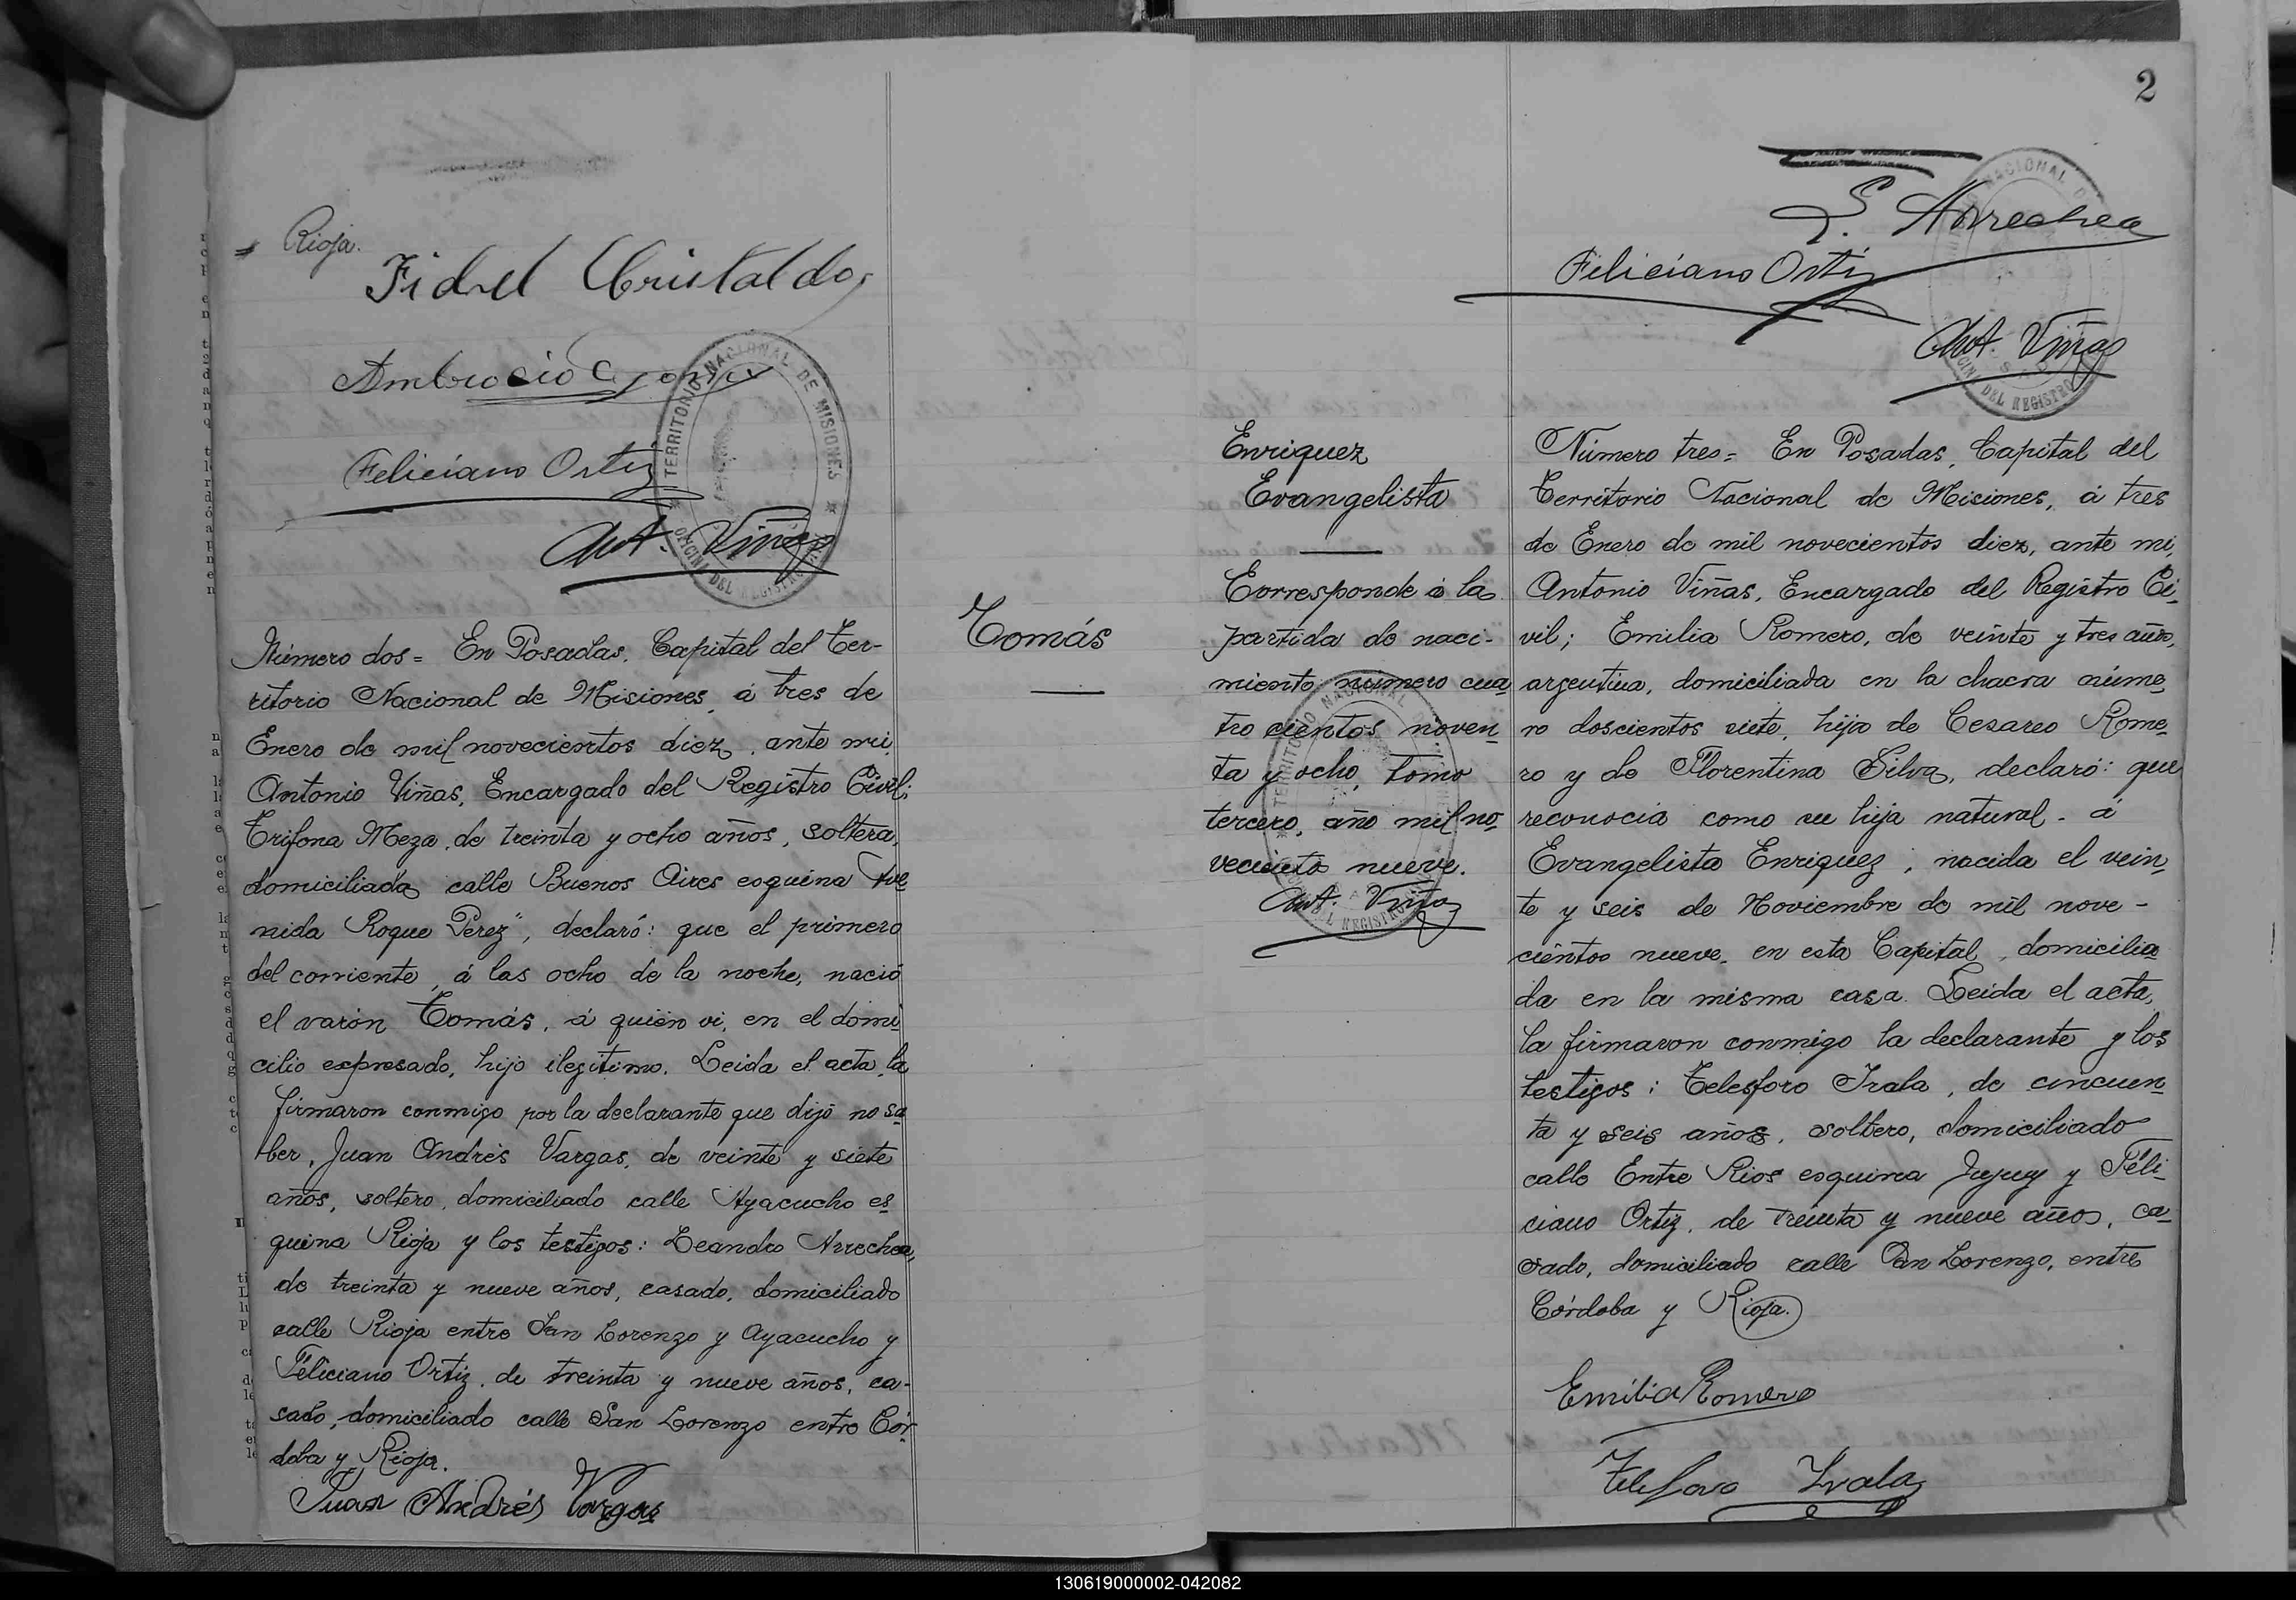 Rioja.
Fidel Cristaldo
Ambrocio
Feliciano Ortiz
TERRITORIO NACIONAL DE MISIONES
OFICINA DEL REGISTRO CIVIL
Ant. Viñas
Número dos = En Posadas, Capital del Ter-
ritorio Nacional de Misiones, á tres de
Enero de mil novecientos diez, ante mi,
Antonio Viñas, Encargado del Registro Civil;
Trifona Meza, de treinta y ocho años, soltera,
domiciliada calle Buenos Aires esquina Ave
nida Roque Perez", declaró: que el primero
del corriente, á las ocho de la noche, nació
el varón Tomás, á quien vi, en el domi
cilio expresado, hijo ilegitimo. Leida el acta, la
firmaron conmigo por la declarante que dijo no sa
ber, Juan Andrés Vargas, de veinte y siete
años, soltero, domiciliado calle Ayacucho es
quina Rioja y los testigos: Leandro Arrechea,
de treinta y nueve años, casado, domiciliado
calle Rioja entre San Lorenzo y Ayacucho y
Feliciano Ortiz, de treinta y nueve años, ca-
sado, domiciliado calle San Lorenzo entre Cór
doba y Rioja.
Juan Andrés Vargas
Tomás
2
L. Arrechea
Feliciano Ortiz
Ant. Viñas
Enriquez
Evangelista
Corresponde á la
partida de naci-
miento número cua
tro cientos noven
ta y ocho, tomo
tercero, año mil no
veciento nueve.
Ant. Viñas
Número tres = En Posadas, Capital del
Territorio Nacional de Misiones, á tres
de Enero de mil novecientos diez, ante mi,
Antonio Viñas, Encargado del Registro Ci-
vil; Emilia Romero, de veinte y tres años,
argentina, domiciliada en la chacra núme
ro doscientos siete, hija de Cesareo Rome
ro y de Florentina Silva, declaró: que
reconocia como su hija natural - á
Evangelista Enriquez, nacida el vein
te y seis de Noviembre de mil nove-
cientos nueve, en esta Capital, domicilia
da en la misma casa. Leida el acta,
la firmaron conmigo la declarante y los
testigos: Telesforo Irala, de cincuen
ta y seis años, soltero, domiciliado
calle Entre Rios esquina Jujuy y Feli-
ciano Ortiz, de treinta y nueve años, ca
sado, domiciliado calle San Lorenzo, entre
Córdoba y Rioja.
Emilia Romero
Telesforo Irala
130619000002-042082